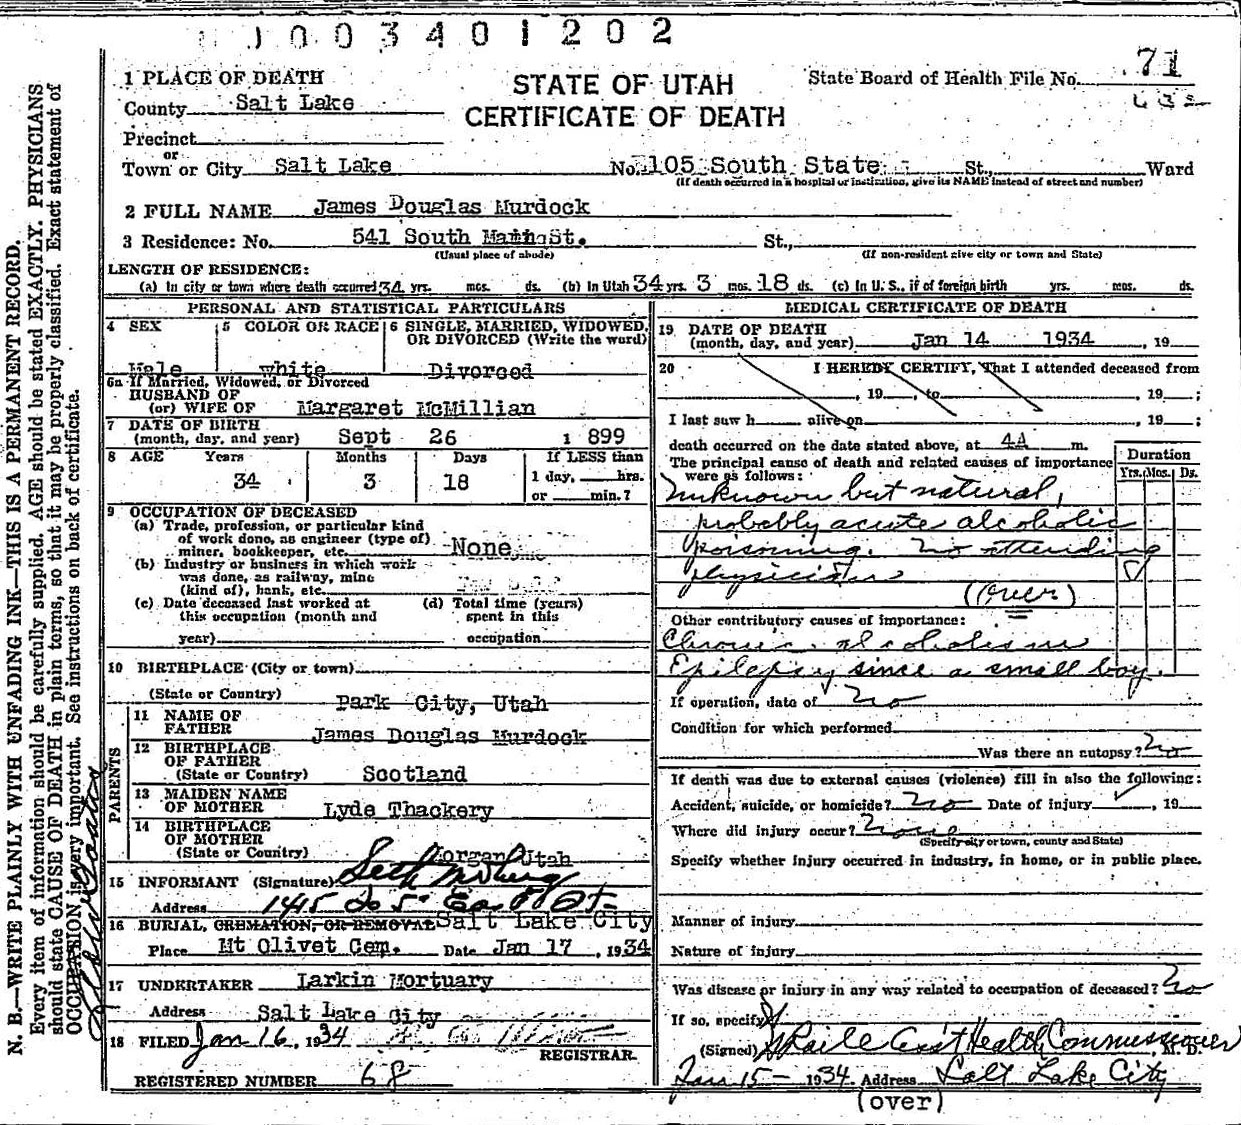 1003401202
1 PLACE OF DEATH
County Salt Lake
Precinct
or
Town or City Salt Lake
STATE OF UTAH
CERTIFICATE OF DEATH
State Board of Health File No. 71
No. 105 South State St., Ward
(If death occurred in a hospital or institution, give its NAME instead of street and number)
2 FULL NAME James Douglas Murdock
3 Residence: No. 541 South Main St. St.,
(Usual place of abode) (If non-resident give city or town and State)
LENGTH OF RESIDENCE:
(a) In city or town where death occurred 34 yrs. mos. ds. (b) In Utah 34 yrs. 3 mos. 18 ds. (c) In U. S., if of foreign birth yrs. mos. ds.
PERSONAL AND STATISTICAL PARTICULARS
4 SEX 5 COLOR OR RACE 6 SINGLE, MARRIED, WIDOWED, OR DIVORCED (Write the word)
Male white Divorced
6a If Married, Widowed, or Divorced
HUSBAND OF
(or) WIFE OF Margaret McMillian
7 DATE OF BIRTH
(month, day, and year) Sept 26 1899
8 AGE Years Months Days If LESS than
34 3 18 1 day, hrs.
or min.?
9 OCCUPATION OF DECEASED
(a) Trade, profession, or particular kind
of work done, as engineer (type of)
miner, bookkeeper, etc. None
(b) Industry or business in which work
was done, as railway, mine
(kind of), bank, etc.
(c) Date deceased last worked at (d) Total time (years)
this occupation (month and spent in this
year) occupation
10 BIRTHPLACE (City or town)
(State or Country) Park City, Utah
PARENTS
11 NAME OF
FATHER James Douglas Murdock
12 BIRTHPLACE
OF FATHER
(State or Country) Scotland
13 MAIDEN NAME
OF MOTHER Lyde Thackery
14 BIRTHPLACE
OF MOTHER
(State or Country) Morgan Utah
15 INFORMANT (Signature) Seth
Address 1415 So 5" East St
16 BURIAL, CREMATION, OR REMOVAL Salt Lake City
Place Mt Olivet Cem. Date Jan 17, 1934
17 UNDERTAKER Larkin Mortuary
Address Salt Lake City
18 FILED Jan 16, 1934
REGISTRAR
REGISTERED NUMBER 68
MEDICAL CERTIFICATE OF DEATH
19 DATE OF DEATH
(month, day, and year) Jan 14 1934, 19
20 I HEREBY CERTIFY, That I attended deceased from
, 19 , to , 19 ;
I last saw h alive on , 19 ;
death occurred on the date stated above, at 4A m.
The principal cause of death and related causes of importance
were as follows:
Duration
Yrs. Mos. Ds.
Unknown but natural,
probably acute alcoholic
poisoning. No attending
physician
(Over)
Other contributory causes of importance:
Chronic alcoholism
Epilepsy since a small boy.
If operation, date of no
Condition for which performed
Was there an autopsy? no
If death was due to external causes (violence) fill in also the following:
Accident, suicide, or homicide? no Date of injury , 19
Where did injury occur? none
(Specify city or town, county and State)
Specify whether injury occurred in industry, in home, or in public place.
Manner of injury
Nature of injury
Was disease or injury in any way related to occupation of deceased? no
If so, specify
(Signed) Asst Health Commissioner, M. D.
Jan 15- 1934. Address Salt Lake City
(over)
N. B.—WRITE PLAINLY WITH UNFADING INK—THIS IS A PERMANENT RECORD.
Every item of information should be carefully supplied. AGE should be stated EXACTLY. PHYSICIANS
should state CAUSE OF DEATH in plain terms, so that it may be properly classified. Exact statement of
OCCUPATION is very important. See instructions on back of certificate.